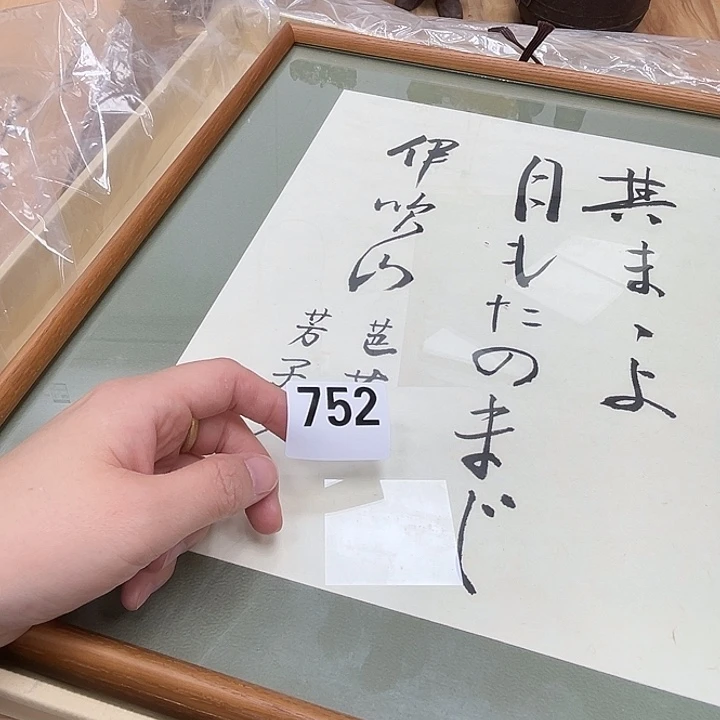 其まゝよ
月もたのまじ
伊吹山
芭
若子
752